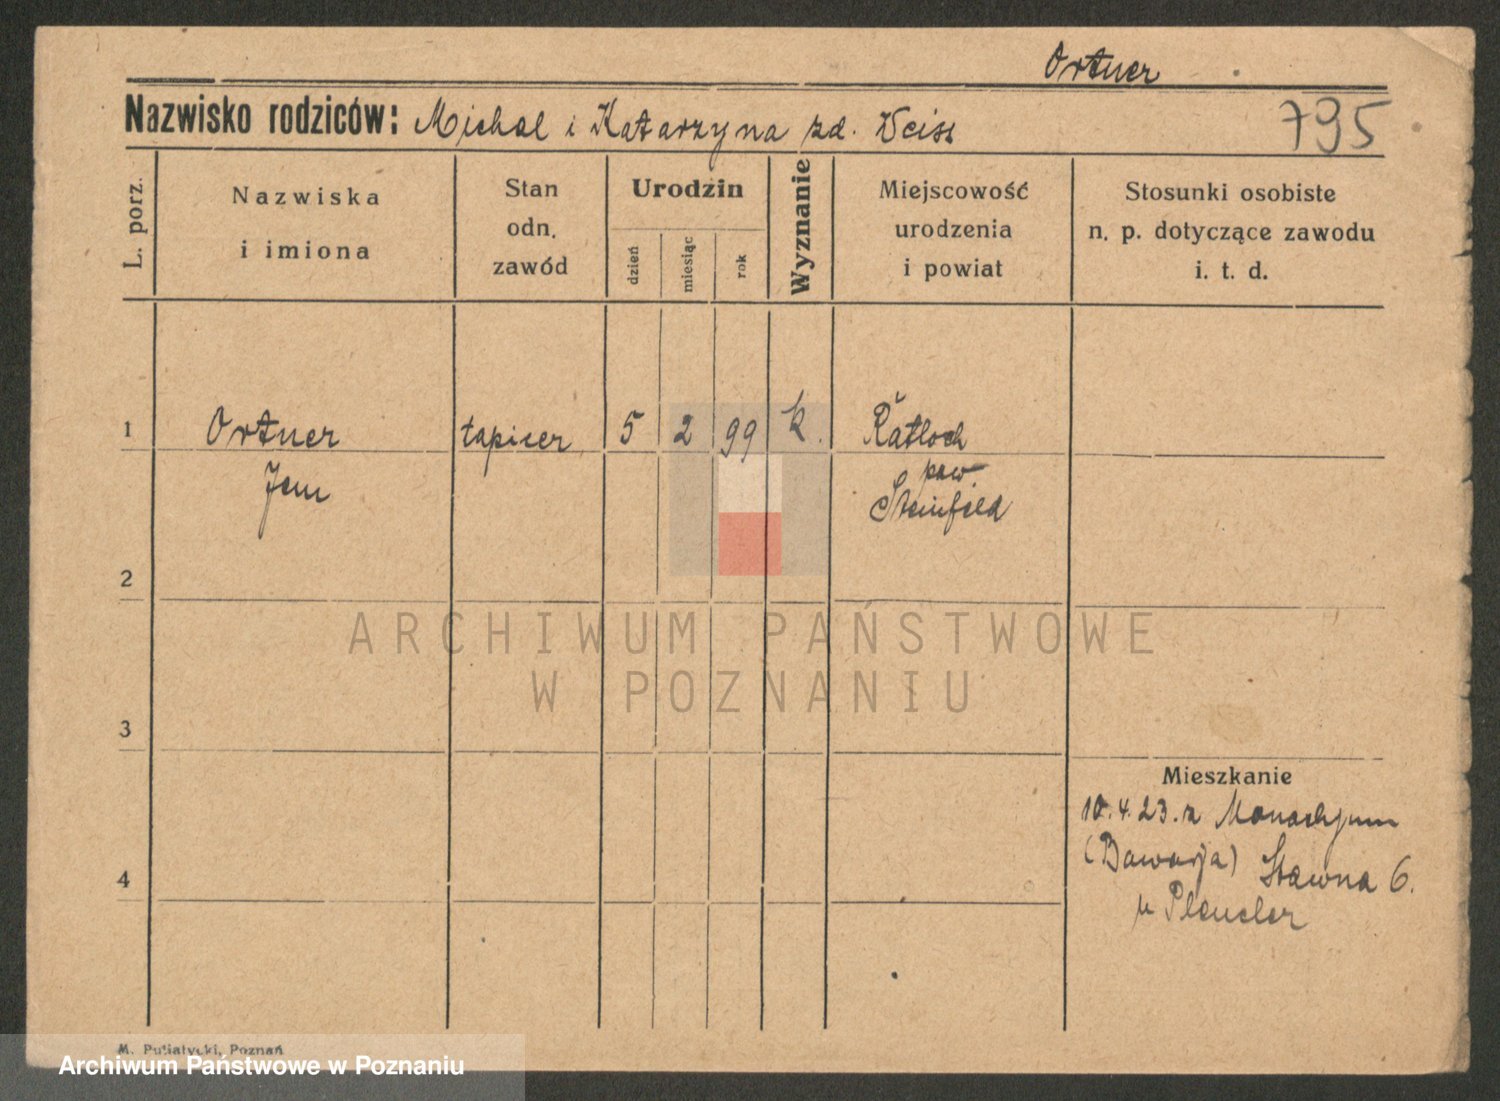 Ortner
Nazwisko rodziców: Michal i Katarzyna zd. Weiss
795
L. porz.
Nazwiska
i imiona
Stan
odn.
zawód
Urodzin
dzień
miesiąc
rok
Wyznanie
Miejscowość
urodzenia
i powiat
Stosunki osobiste
n. p. dotyczące zawodu
i. t. d.
1
Ortner
Jan
tapicer
5
2
99
k.
Ratloch
pow.
Steinfeld
2
3
4
Mieszkanie
10.4.23. z Monachjum
(Bawarja) Stawna 6.
u
M. Putiatycki, Poznań
ARCHIWUM PAŃSTWOWE
W POZNANIU
Archiwum Państwowe w Poznaniu